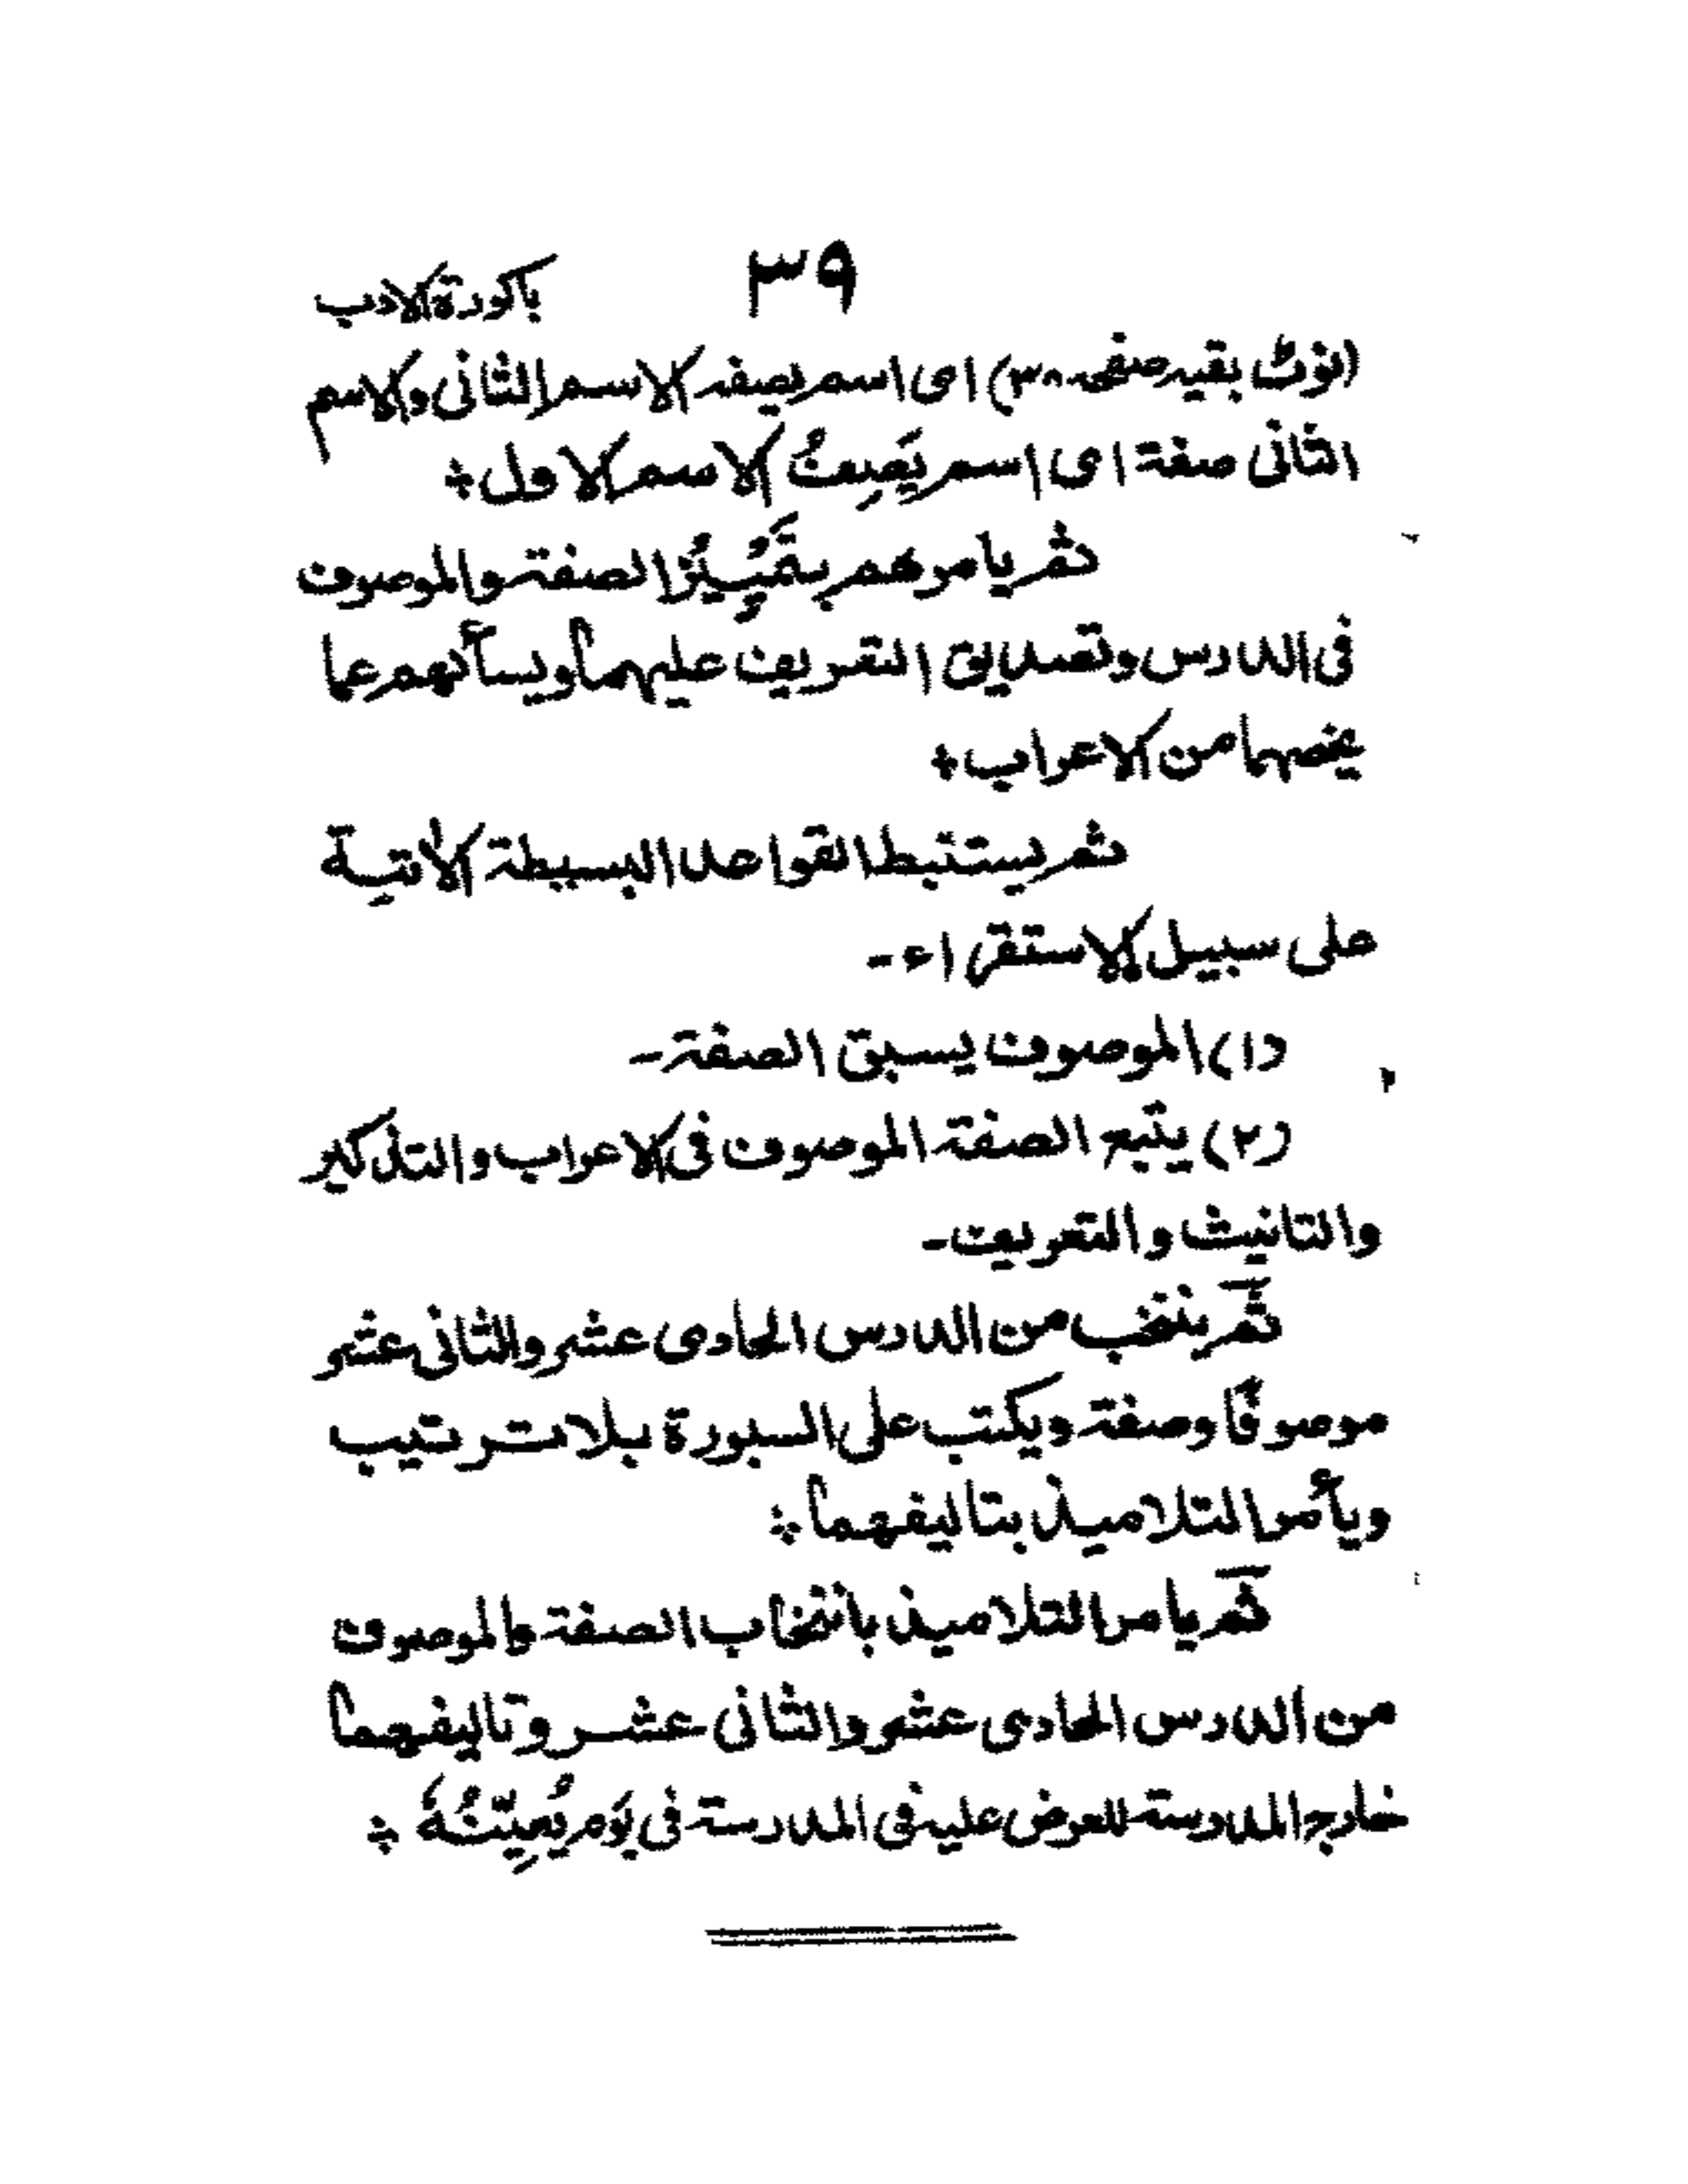 ٣٩ باكورة الادب
(نوٹ بقيہ صفحہ ٣٨) اى اسم يصفہ الاسم الثانى والاسم
الثانى صفة اى اسم يَصِفُ الاسم الاول ÷
ثم يامرهم بتَمْيِيْزِ الصفة والموصوف
فى الدرس وتصديق التعريف عليهما ويسألهم عما
يخصهما من الاعراب ÷
ثم يستنبط القواعد البسيطة الأتية
على سبيل الاستقراء -
(١) الموصوف يسبق الصفة -
(٢) يتبع الصفة الموصوف فى الاعراب والتذكير
والتانيث والتعريف -
ثم ينتخب من الدرس الحادى عشر والثانى عشر
موصوفًا وصفة ويكتب على السبورة بلا ترتيب
ويأمر التلاميذ بتاليفهما ÷
ثم يامر التلاميذ بانتخاب الصفة والموصوف
من الدرس الحادى عشر والثانى عشر وتاليفهما
خارج المدرسة للعرض عليہ فى المدرسة فى يَوْمٍ يُعِيّنُهُ ÷